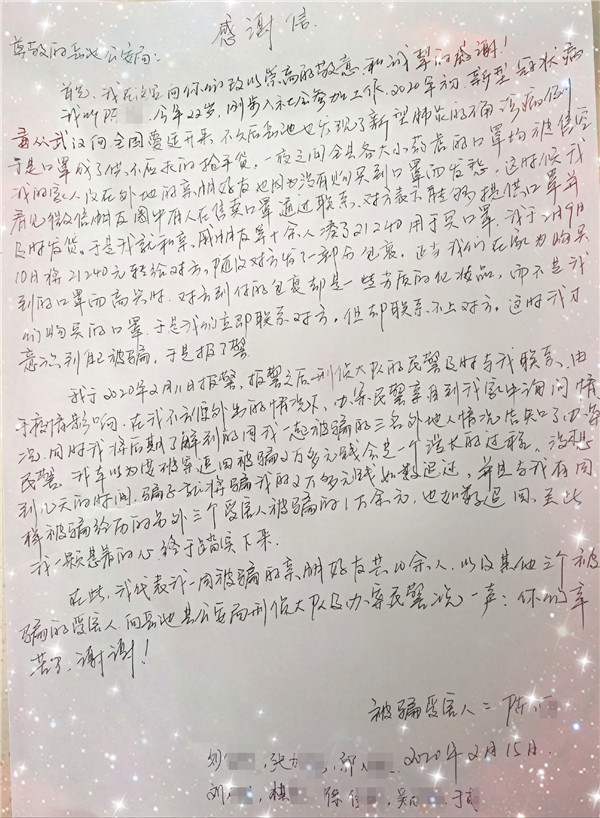 感谢信
尊敬的岳池公安局:
首先,我在这里向你们致以崇高的敬意和诚挚的感谢!
我叫陈 今年22岁,刚步入社会参加工作。2020年初,新型冠状病
毒从武汉向全国蔓延开来,不久后岳池也发现了新型肺炎的确诊病例
于是口罩成了供不应求的抢手货,一夜之间全县各大小药店的口罩均被售空
我的家人及在外地的亲朋好友也因为没有购买到口罩而发愁,这时候我
看见微信朋友圈中有人在售卖口罩,通过联系,对方表示能够提供口罩并
及时发货。于是我就和亲朋朋友等十余人凑了21240用于买口罩,我于2月9日
10日将21240元转给对方,随后对方发了一部分包裹。正当我们在家为购买
到的口罩而高兴时,对方到付的包裹却是一些劣质的化妆品,而不是我
们购买的口罩,于是我们立即联系对方,但却联系不上对方,这时我才
意识到自己被骗,于是报了警。
我于2020年2月11日报警,报警之后刑侦大队的民警及时与我联系,由
于疫情影响,在我不方便外出的情况下,办案民警亲自到我家中询问情
况,同时我将后期了解到的同我一起被骗的三名外地人情况告知了办案
民警。我本以为侦破案追回被骗2万多元钱会是一个漫长的过程,没想
到几天的时间,骗子就将骗我的2万多元钱如数退还,并且与我有同
样被骗经历的另外三个受害人被骗的1万余元,也如数退回,至此
我一颗悬着的心终于踏实下来。
在此,我代表我一同被骗的亲朋好友共10余人,以及其他三个被
骗的受害人向岳池县公安局刑侦大队及办案民警说一声:你们辛
苦了,谢谢!
被骗受害人:陈
刘 ,张 ,邓 2020年2月15日.
刘 , ,吴